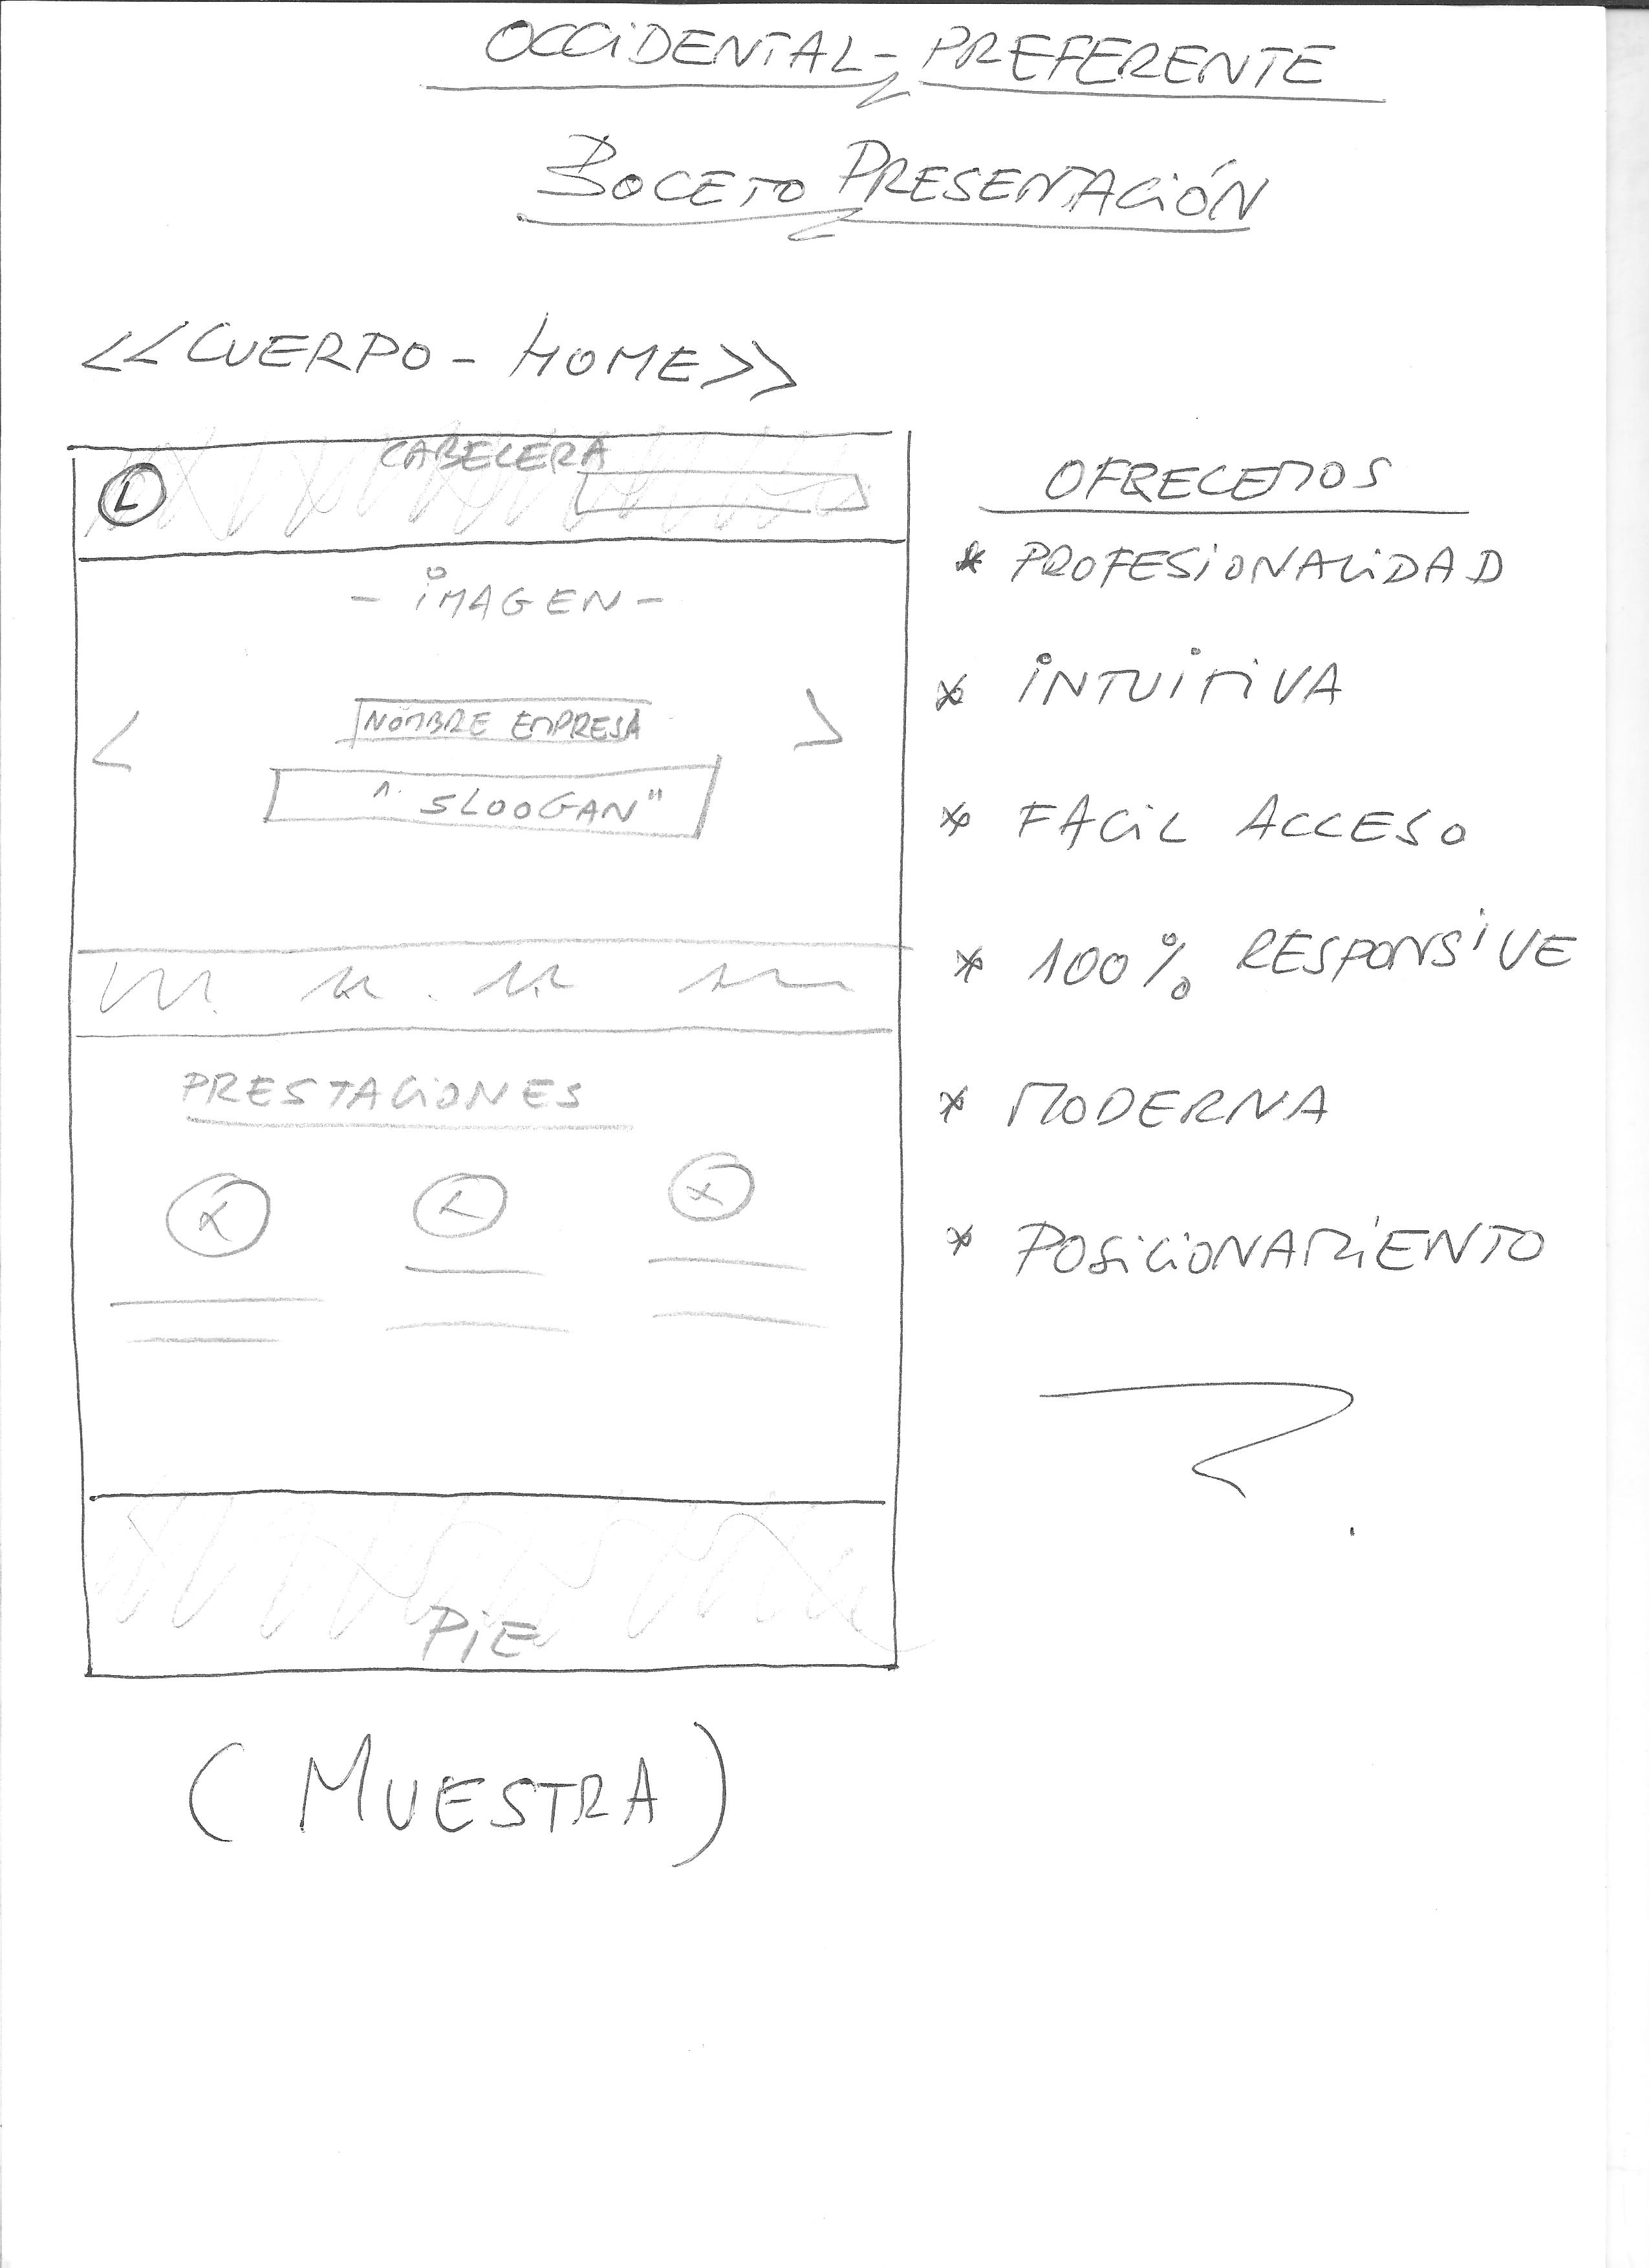 OCCIDENTAL - PREFERENTE
BOCETO PRESENTACIÓN
<<CUERPO - HOME>>
CABECERA
L
- IMAGEN -
< >
NOMBRE EMPRESA
" SLOOGAN "
PRESTACIONES
PIE
(MUESTRA)
OFRECEMOS
* PROFESIONALIDAD
* INTUITIVA
* FACIL ACCESO
* 100% RESPONSIVE
* MODERNA
* POSICIONAMIENTO